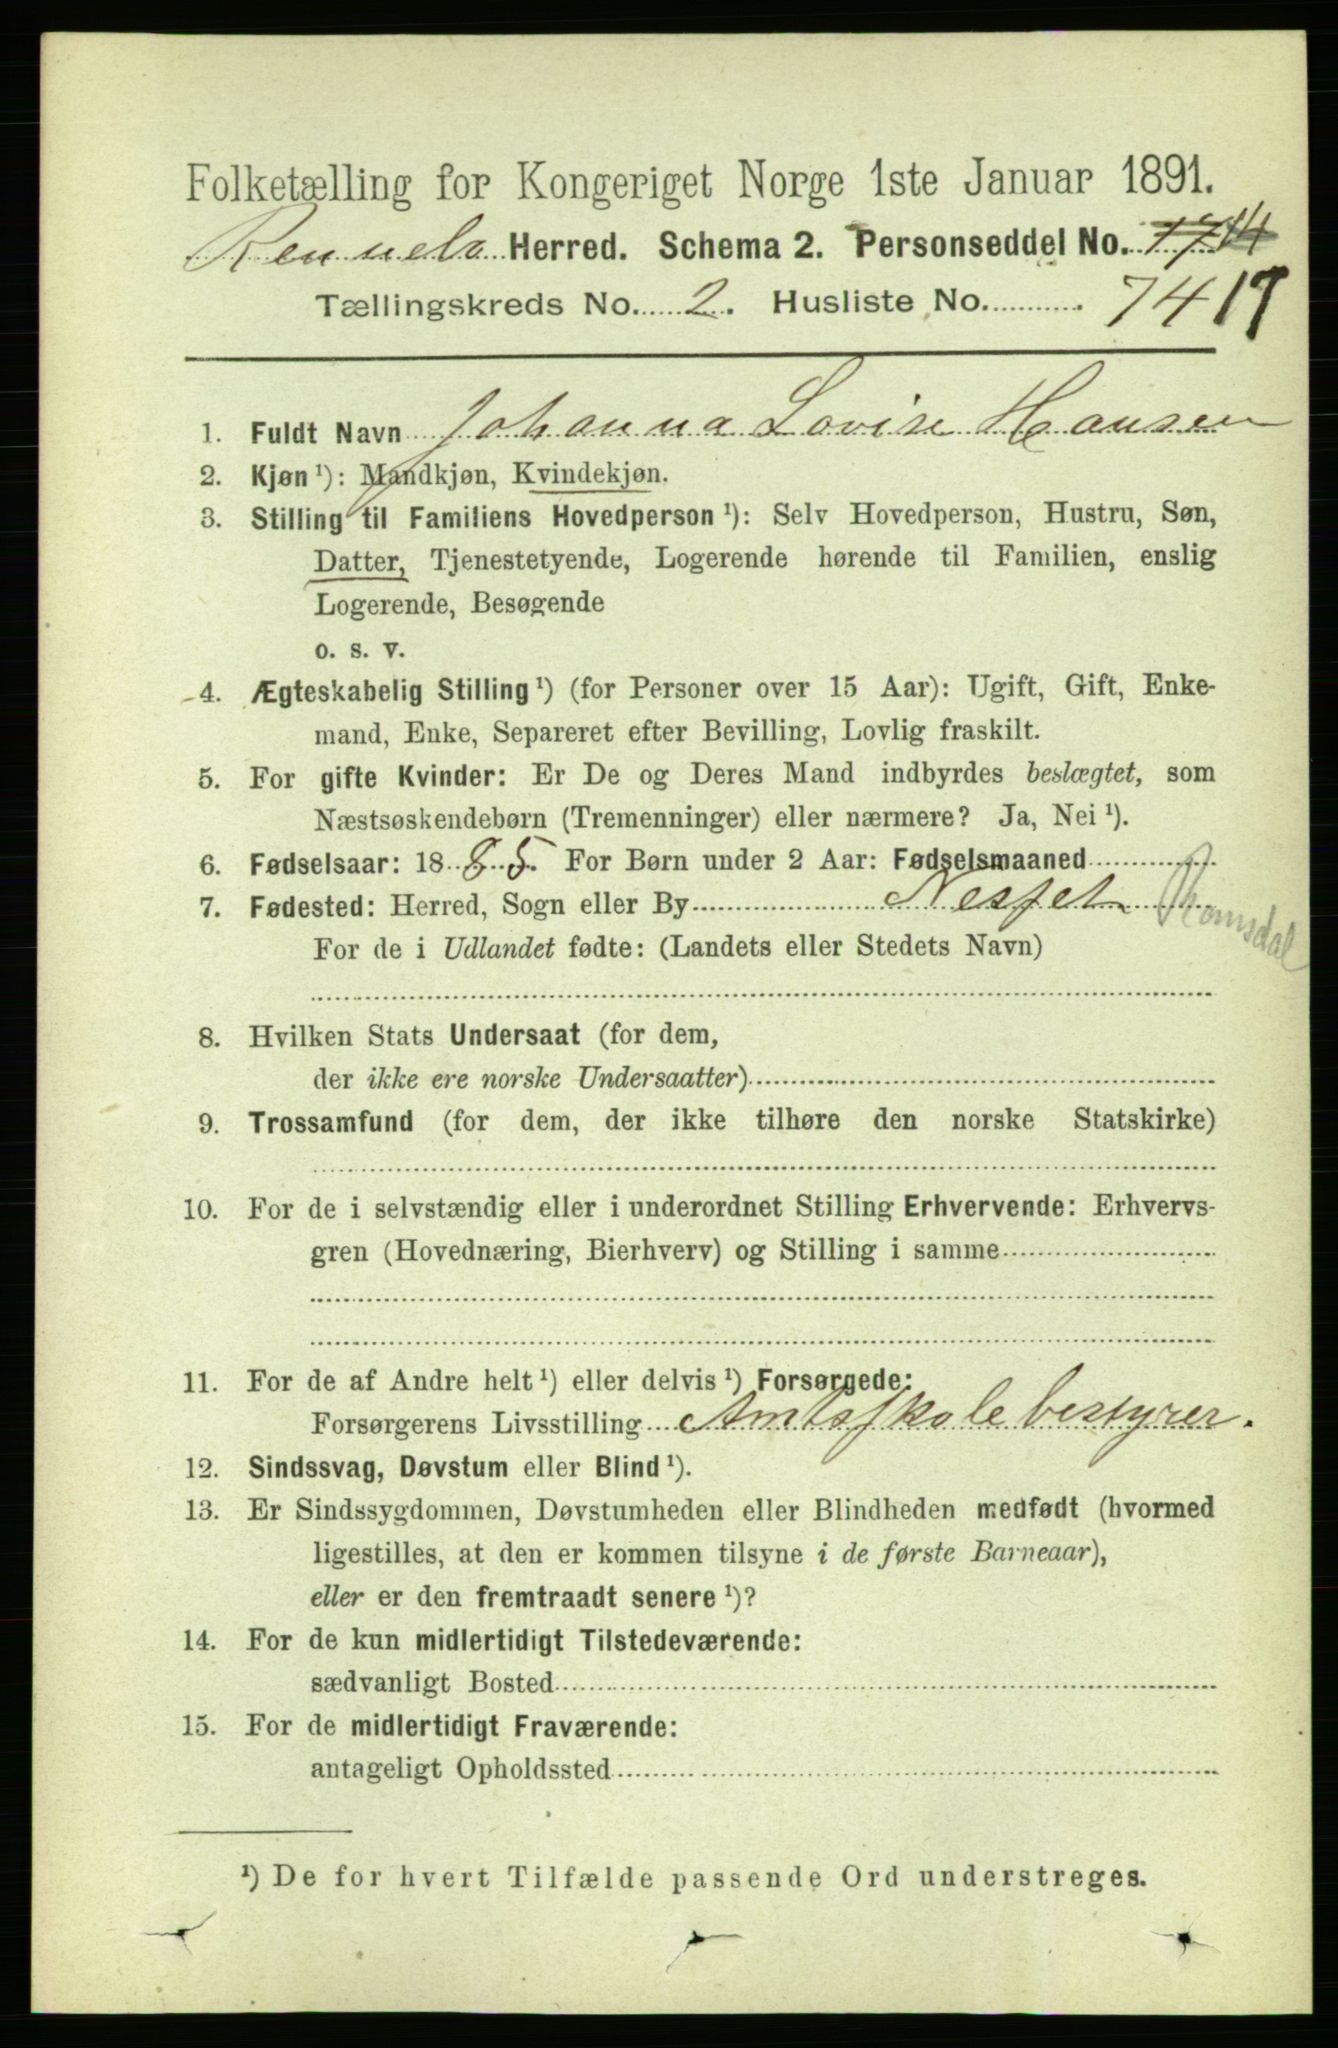 Folketælling for Kongeriget Norge 1ste Januar 1891.
Rennebo Herred. Schema 2. Personseddel No. 1714
Tællingskreds No. 2. Husliste No. 74 17
1. Fuldt Navn Johanna Lovise Hansen
2. Kjøn ¹): Mandkjøn, Kvindekjøn.
3. Stilling til Familiens Hovedperson ¹): Selv Hovedperson, Hustru, Søn,
Datter, Tjenestetyende, Logerende hørende til Familien, enslig
Logerende, Besøgende
o. s. v.
4. Ægteskabelig Stilling ¹) (for Personer over 15 Aar): Ugift, Gift, Enke-
mand, Enke, Separeret efter Bevilling, Lovlig fraskilt.
5. For gifte Kvinder: Er De og Deres Mand indbyrdes beslægtet, som
Næstsøskendebørn (Tremenninger) eller nærmere? Ja, Nei ¹).
6. Fødselsaar: 18 85. For Børn under 2 Aar: Fødselsmaaned
7. Fødested: Herred, Sogn eller By Nesset Romsdal
For de i Udlandet fødte: (Landets eller Stedets Navn)
8. Hvilken Stats Undersaat (for dem,
der ikke ere norske Undersaatter)
9. Trossamfund (for dem, der ikke tilhøre den norske Statskirke)
10. For de i selvstændig eller i underordnet Stilling Erhvervende: Erhvervs-
gren (Hovednæring, Bierhverv) og Stilling i samme
11. For de af Andre helt ¹) eller delvis ¹) Forsørgede:
Forsørgerens Livsstilling Amtsskolebestyrer.
12. Sindssvag, Døvstum eller Blind ¹).
13. Er Sindssygdommen, Døvstumheden eller Blindheden medfødt (hvormed
ligestilles, at den er kommen tilsyne i de første Barneaar),
eller er den fremtraadt senere ¹)?
14. For de kun midlertidigt Tilstedeværende:
sædvanligt Bosted
15. For de midlertidigt Fraværende:
antageligt Opholdssted
¹) De for hvert Tilfælde passende Ord understreges.